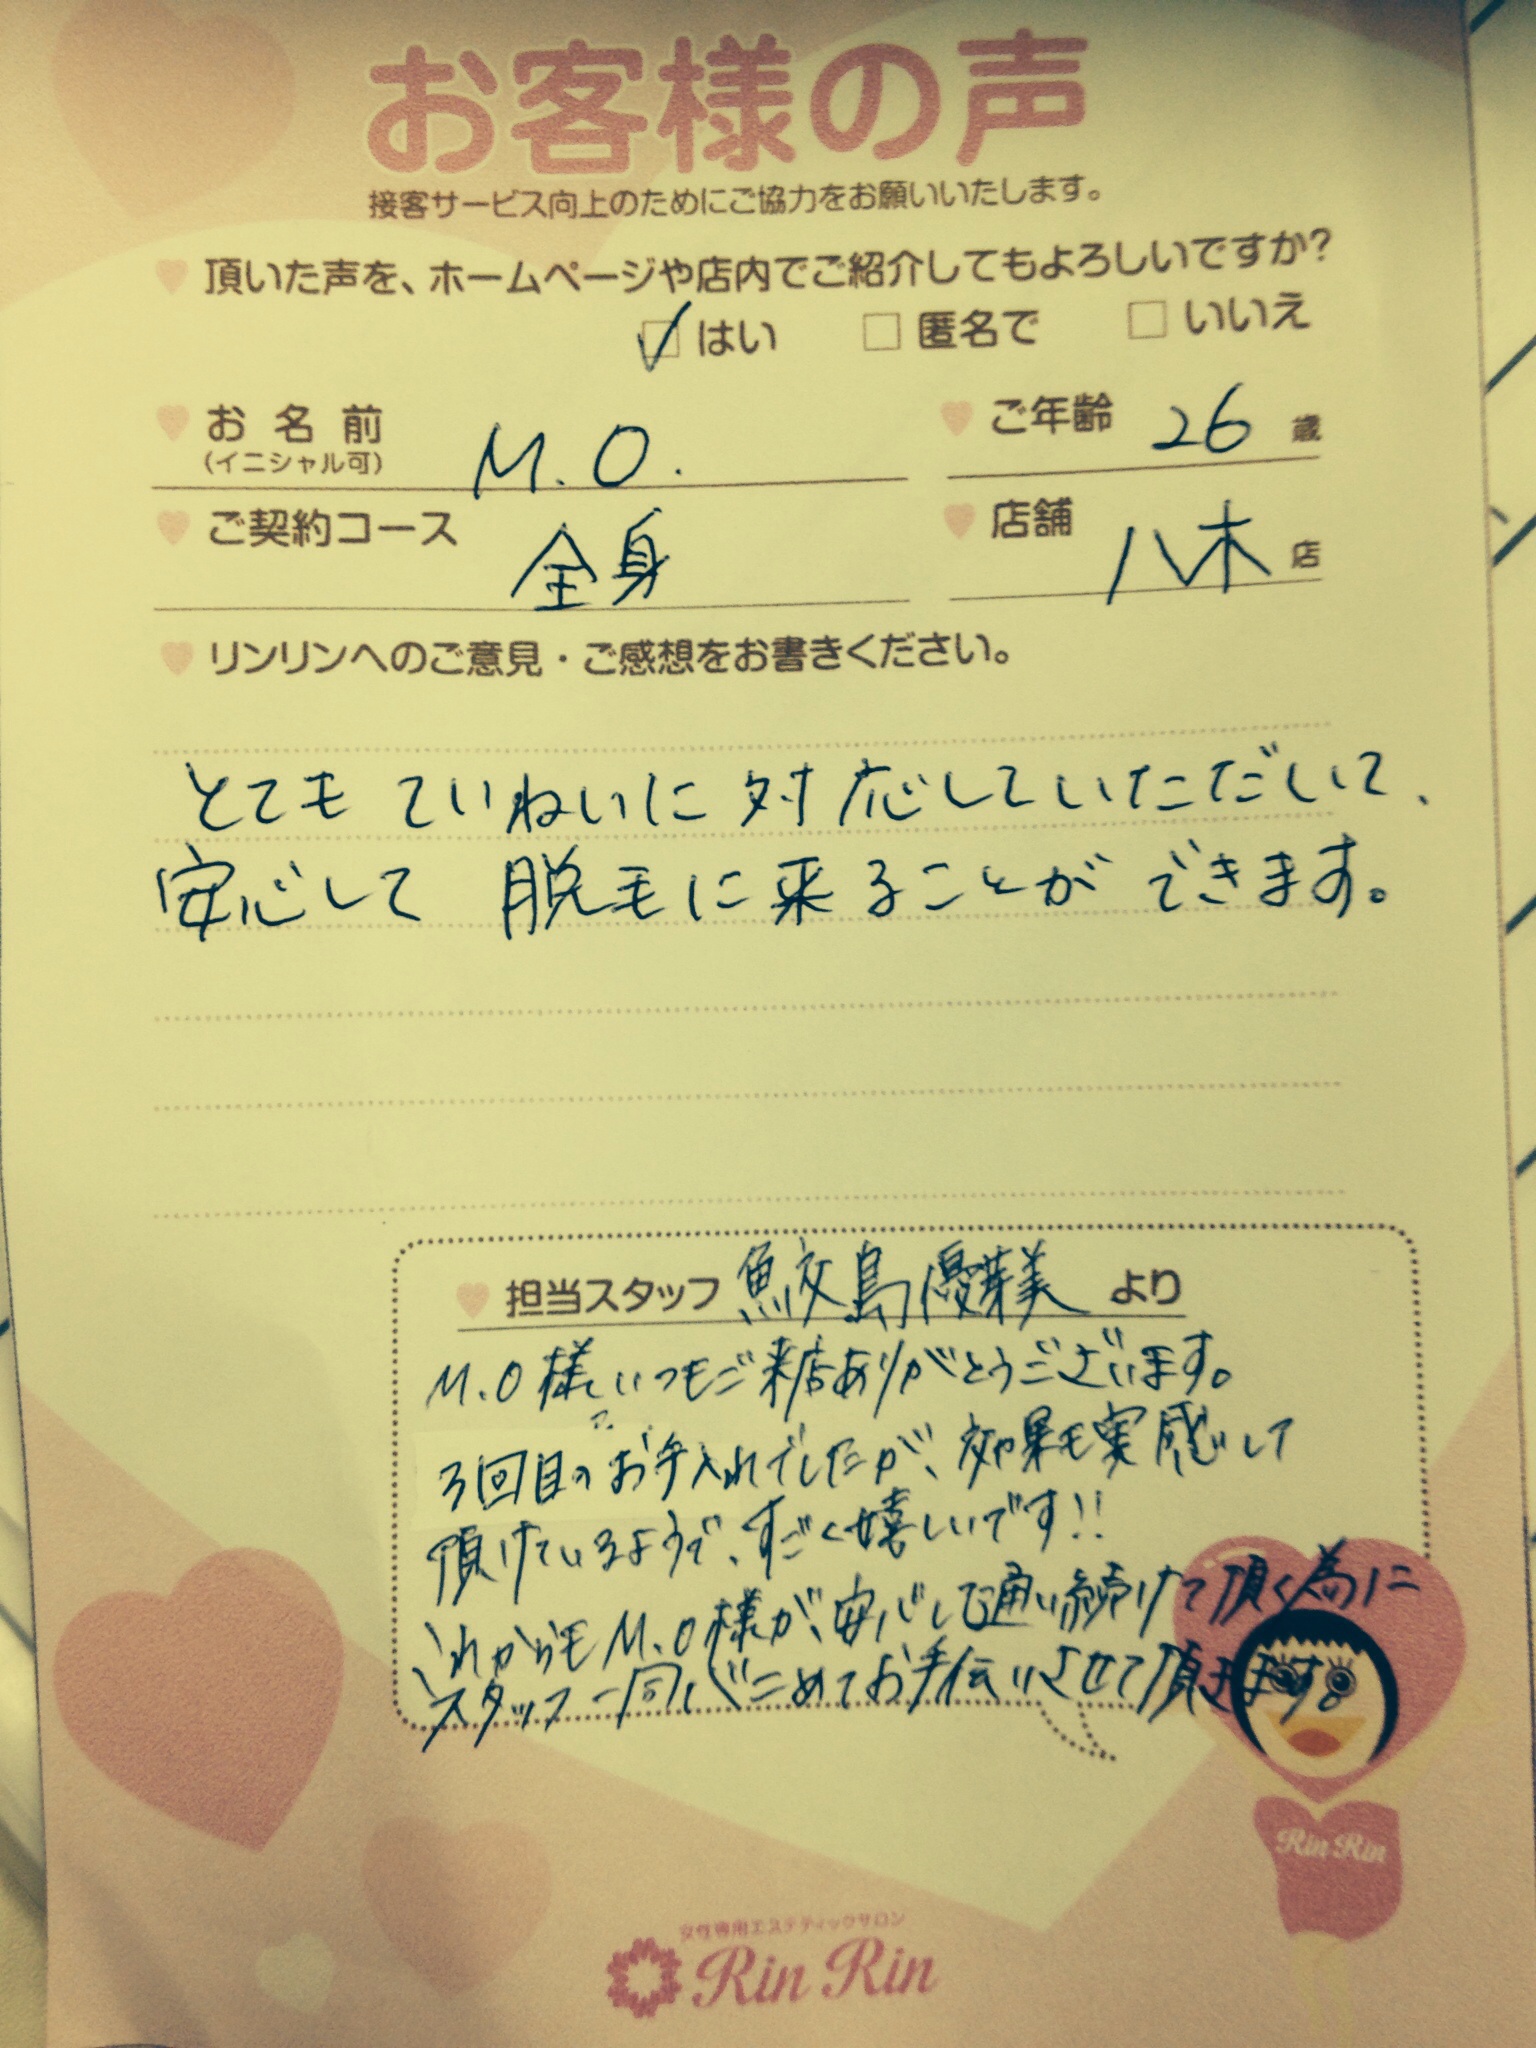 お客様の声
接客サービス向上のためにご協力をお願いいたします。
頂いた声を、ホームページや店内でご紹介してもよろしいですか?
はい 匿名で いいえ
お名前 M.O. ご年齢 26 歳
(イニシャル可)
ご契約コース 全身 店舗 八木 店
リンリンへのご意見・ご感想をお書きください。
とても ていねいに 対応していただだいて、
安心して 脱毛に来ることが できます。
担当スタッフ 鮫島優芽美 より
M.O様いつもご来店ありがとうございます。
3回目のお手入れでしたが、効果も実感して
頂けているようで、すごく嬉しいです!!
これからもM.O様が、安心して通い続けて頂く為に
スタッフ一同心こめてお手伝いさせて頂きます。
Rin Rin
女性専用エステティックサロン
Rin Rin